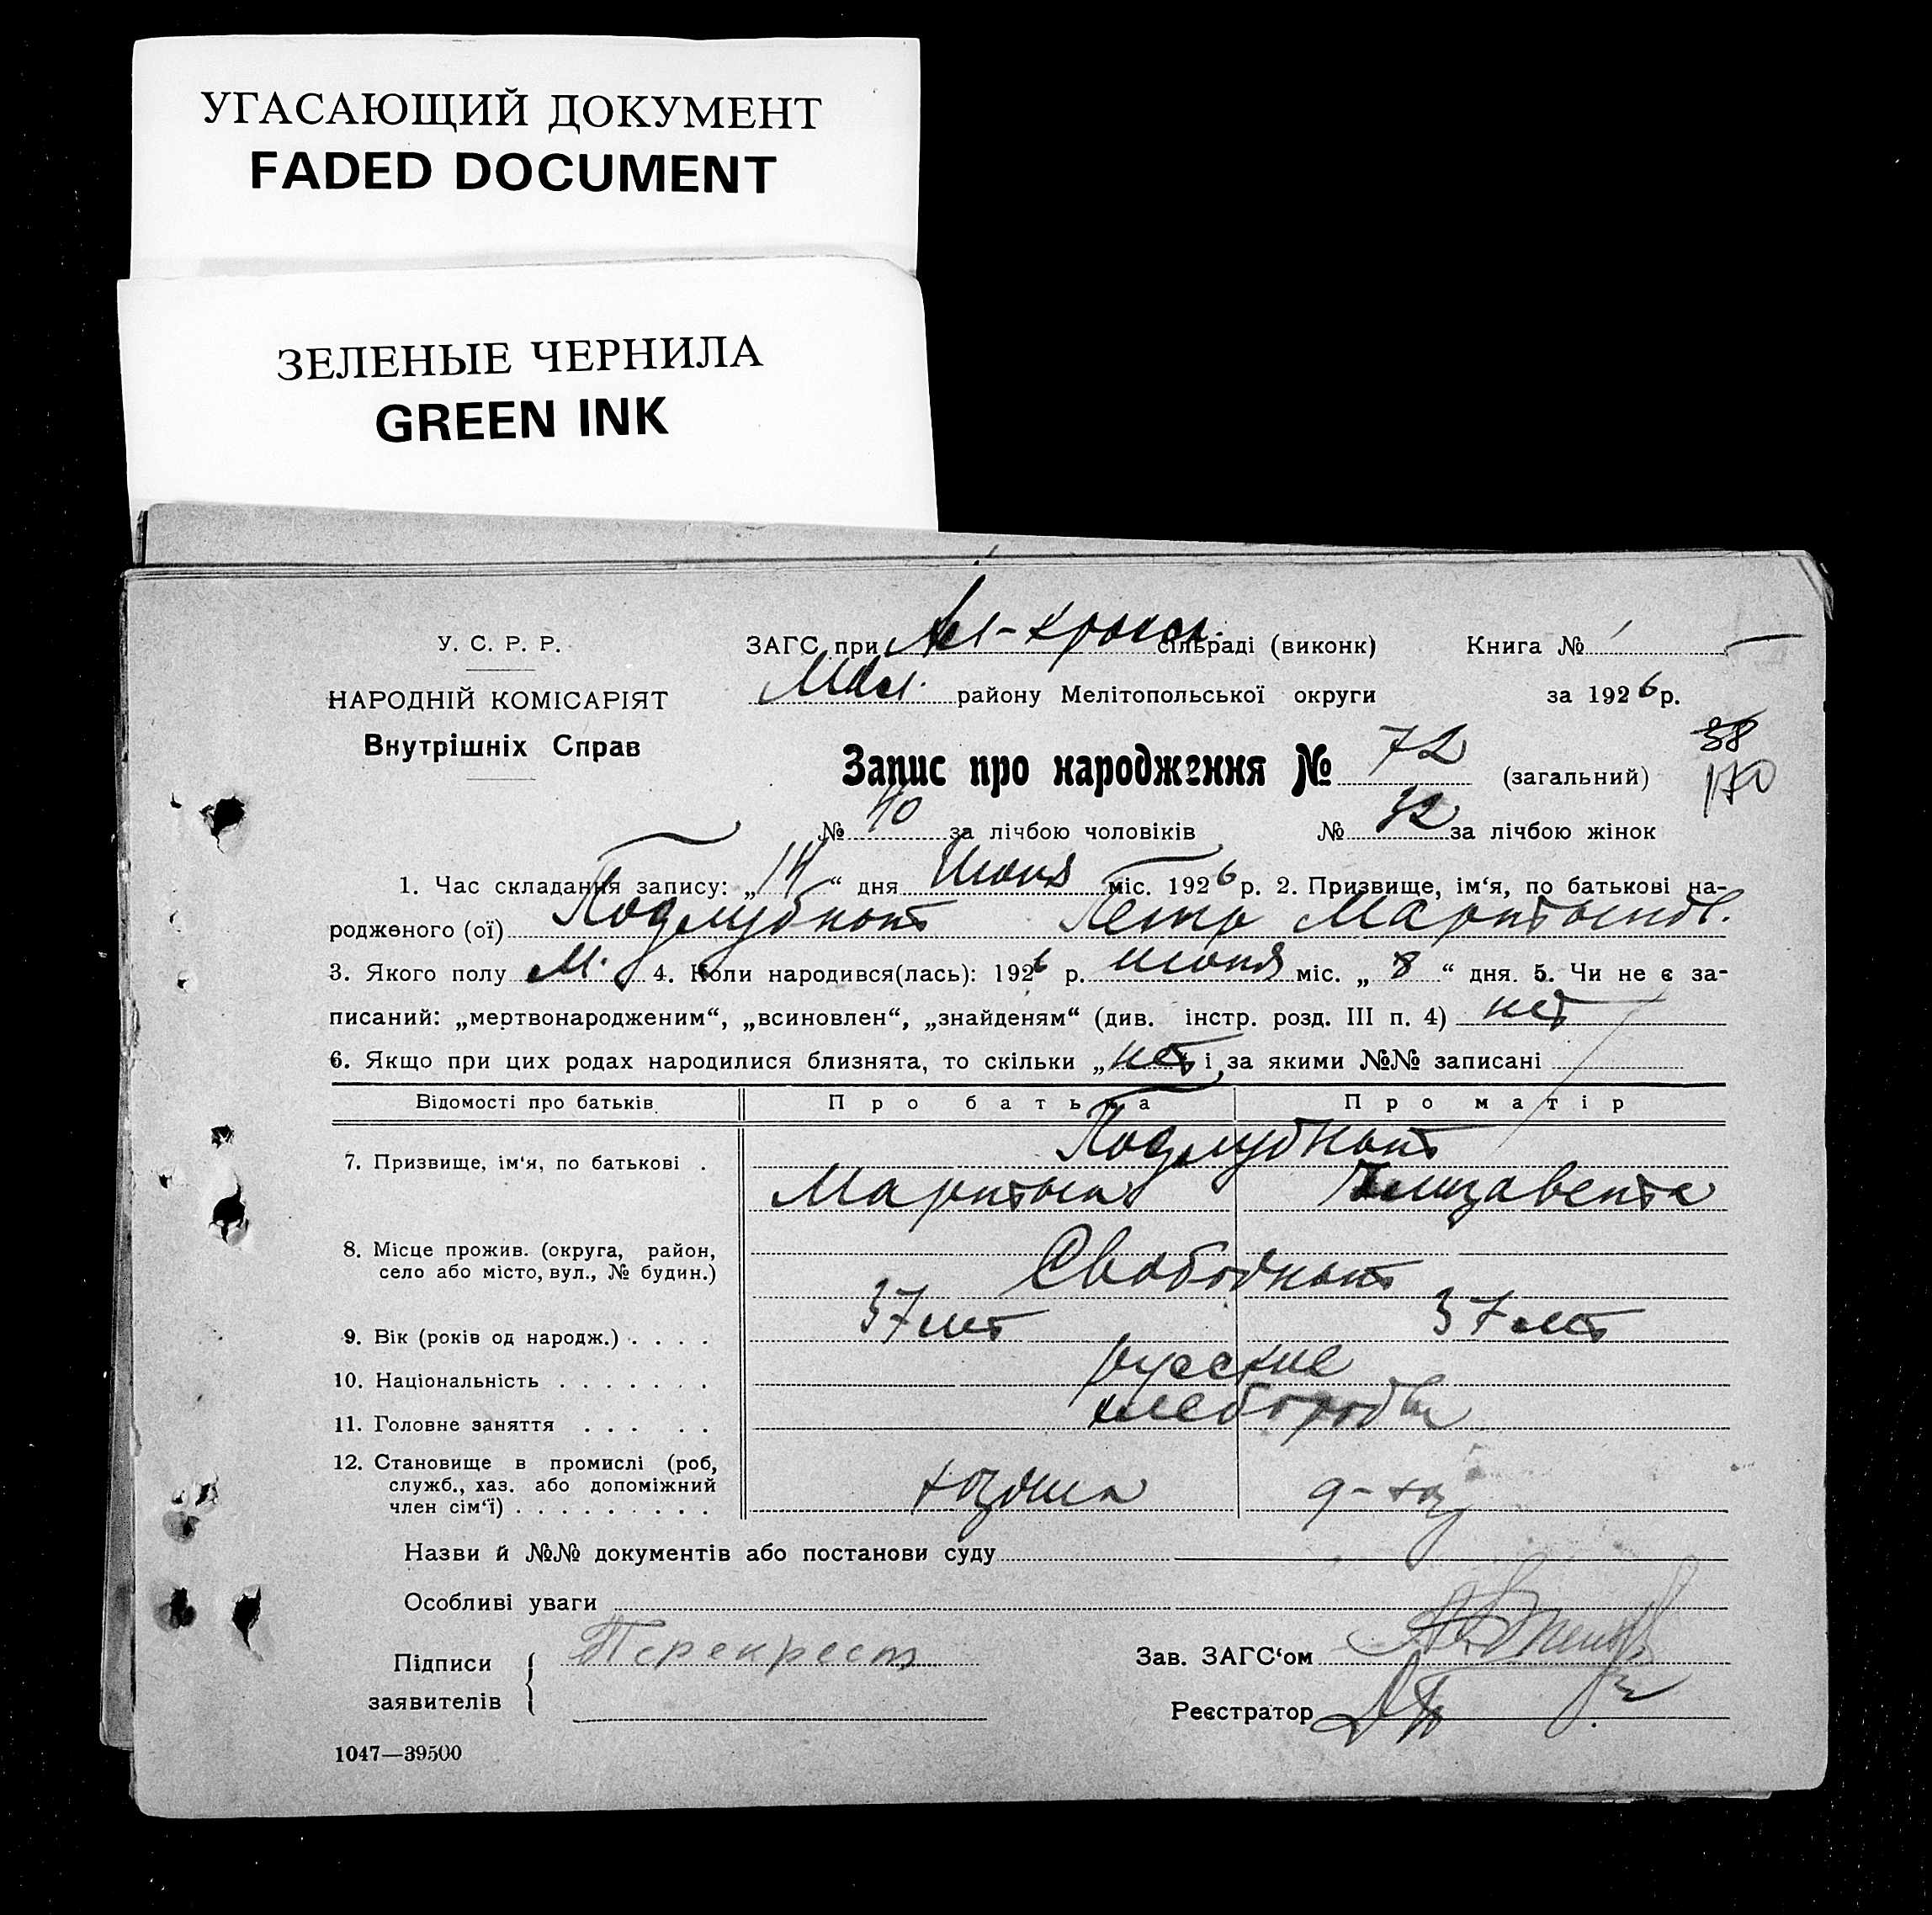 УГАСАЮЩИЙ ДОКУМЕНТ
FADED DOCUMENT
ЗЕЛЕНЫЕ ЧЕРНИЛА
GREEN INK
У. С. Р. Р.
НАРОДНІЙ КОМІСАРІЯТ
Внутрішніх Справ
ЗАГС при сільраді (виконк) Книга №
району Мелітопольської округи за 1926 р.
Запис про народження № 72 (загальний)
38
170
№ 40 за лічбою чоловіків № 32 за лічбою жінок
1. Час складання запису: „14“ дня Июня міс. 1926 р. 2. Призвище, ім'я, по батькові на-
родженого (ої) Петр Мартынов.
3. Якого полу М. 4. Коли народився(лась): 1926 р. июня міс. „8“ дня. 5. Чи не є за-
писаний: „мертвонародженим“, „всиновлен“, „знайденям“ (див. інстр. розд. III п. 4) нет
6. Якщо при цих родах народилися близнята, то скільки „нет і за якими №№ записані
Відомості про батьків Про батька Про матір
7. Призвище, ім'я, по батькові .
Мартын Елизавета
8. Місце прожив. (округа, район,
село або місто, вул., № будин.)
9. Вік (років од народж.) . . . . 37 лет 37 лет
10. Національність . . . . . . . русские
11. Головне заняття . . . . . хлеборобы
12. Становище в промислі (роб,
служб., хаз. або допоміжний
член сім'ї) . . . . . . . . . хозяин
Назви й №№ документів або постанови суду
Особливі уваги
Підписи
заявителів
Перекрест
Зав. ЗАГС'ом
Реєстратор
1047—39500